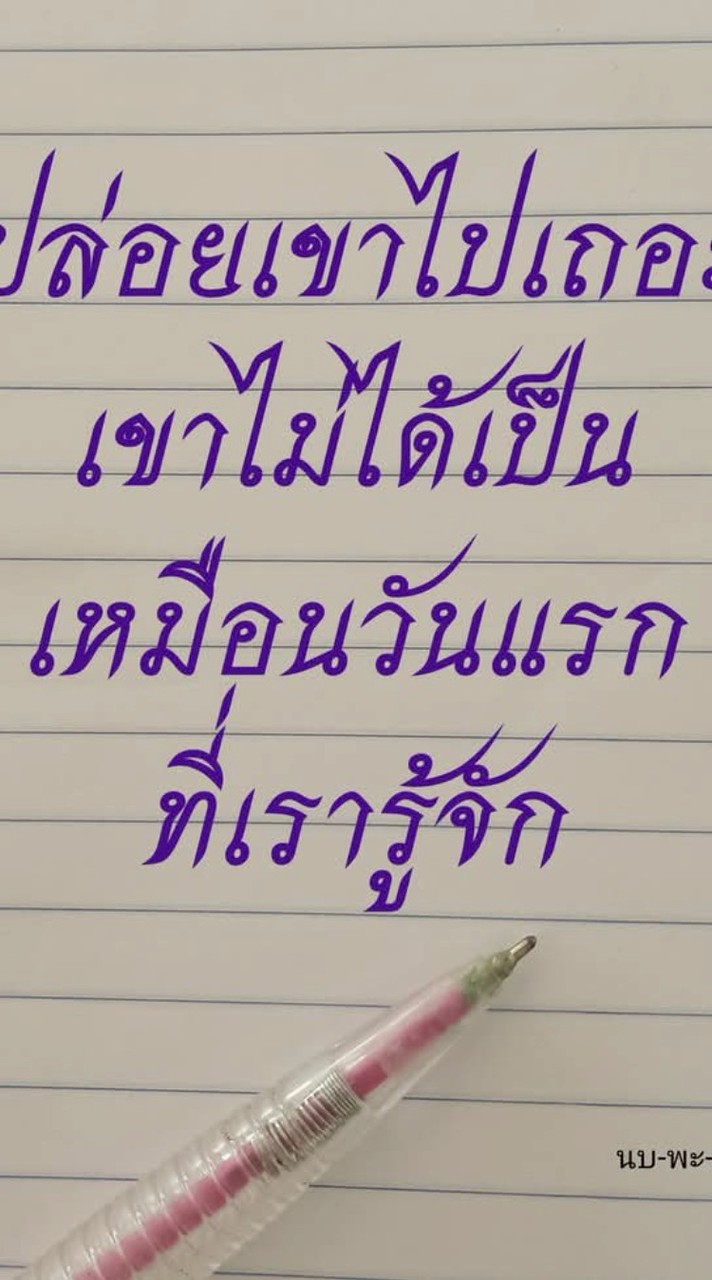 ปล่อยเขาไปเถอะ
เขาไม่ได้เป็น
เหมือนวันแรก
ที่เรารู้จัก
นบ-พะ-